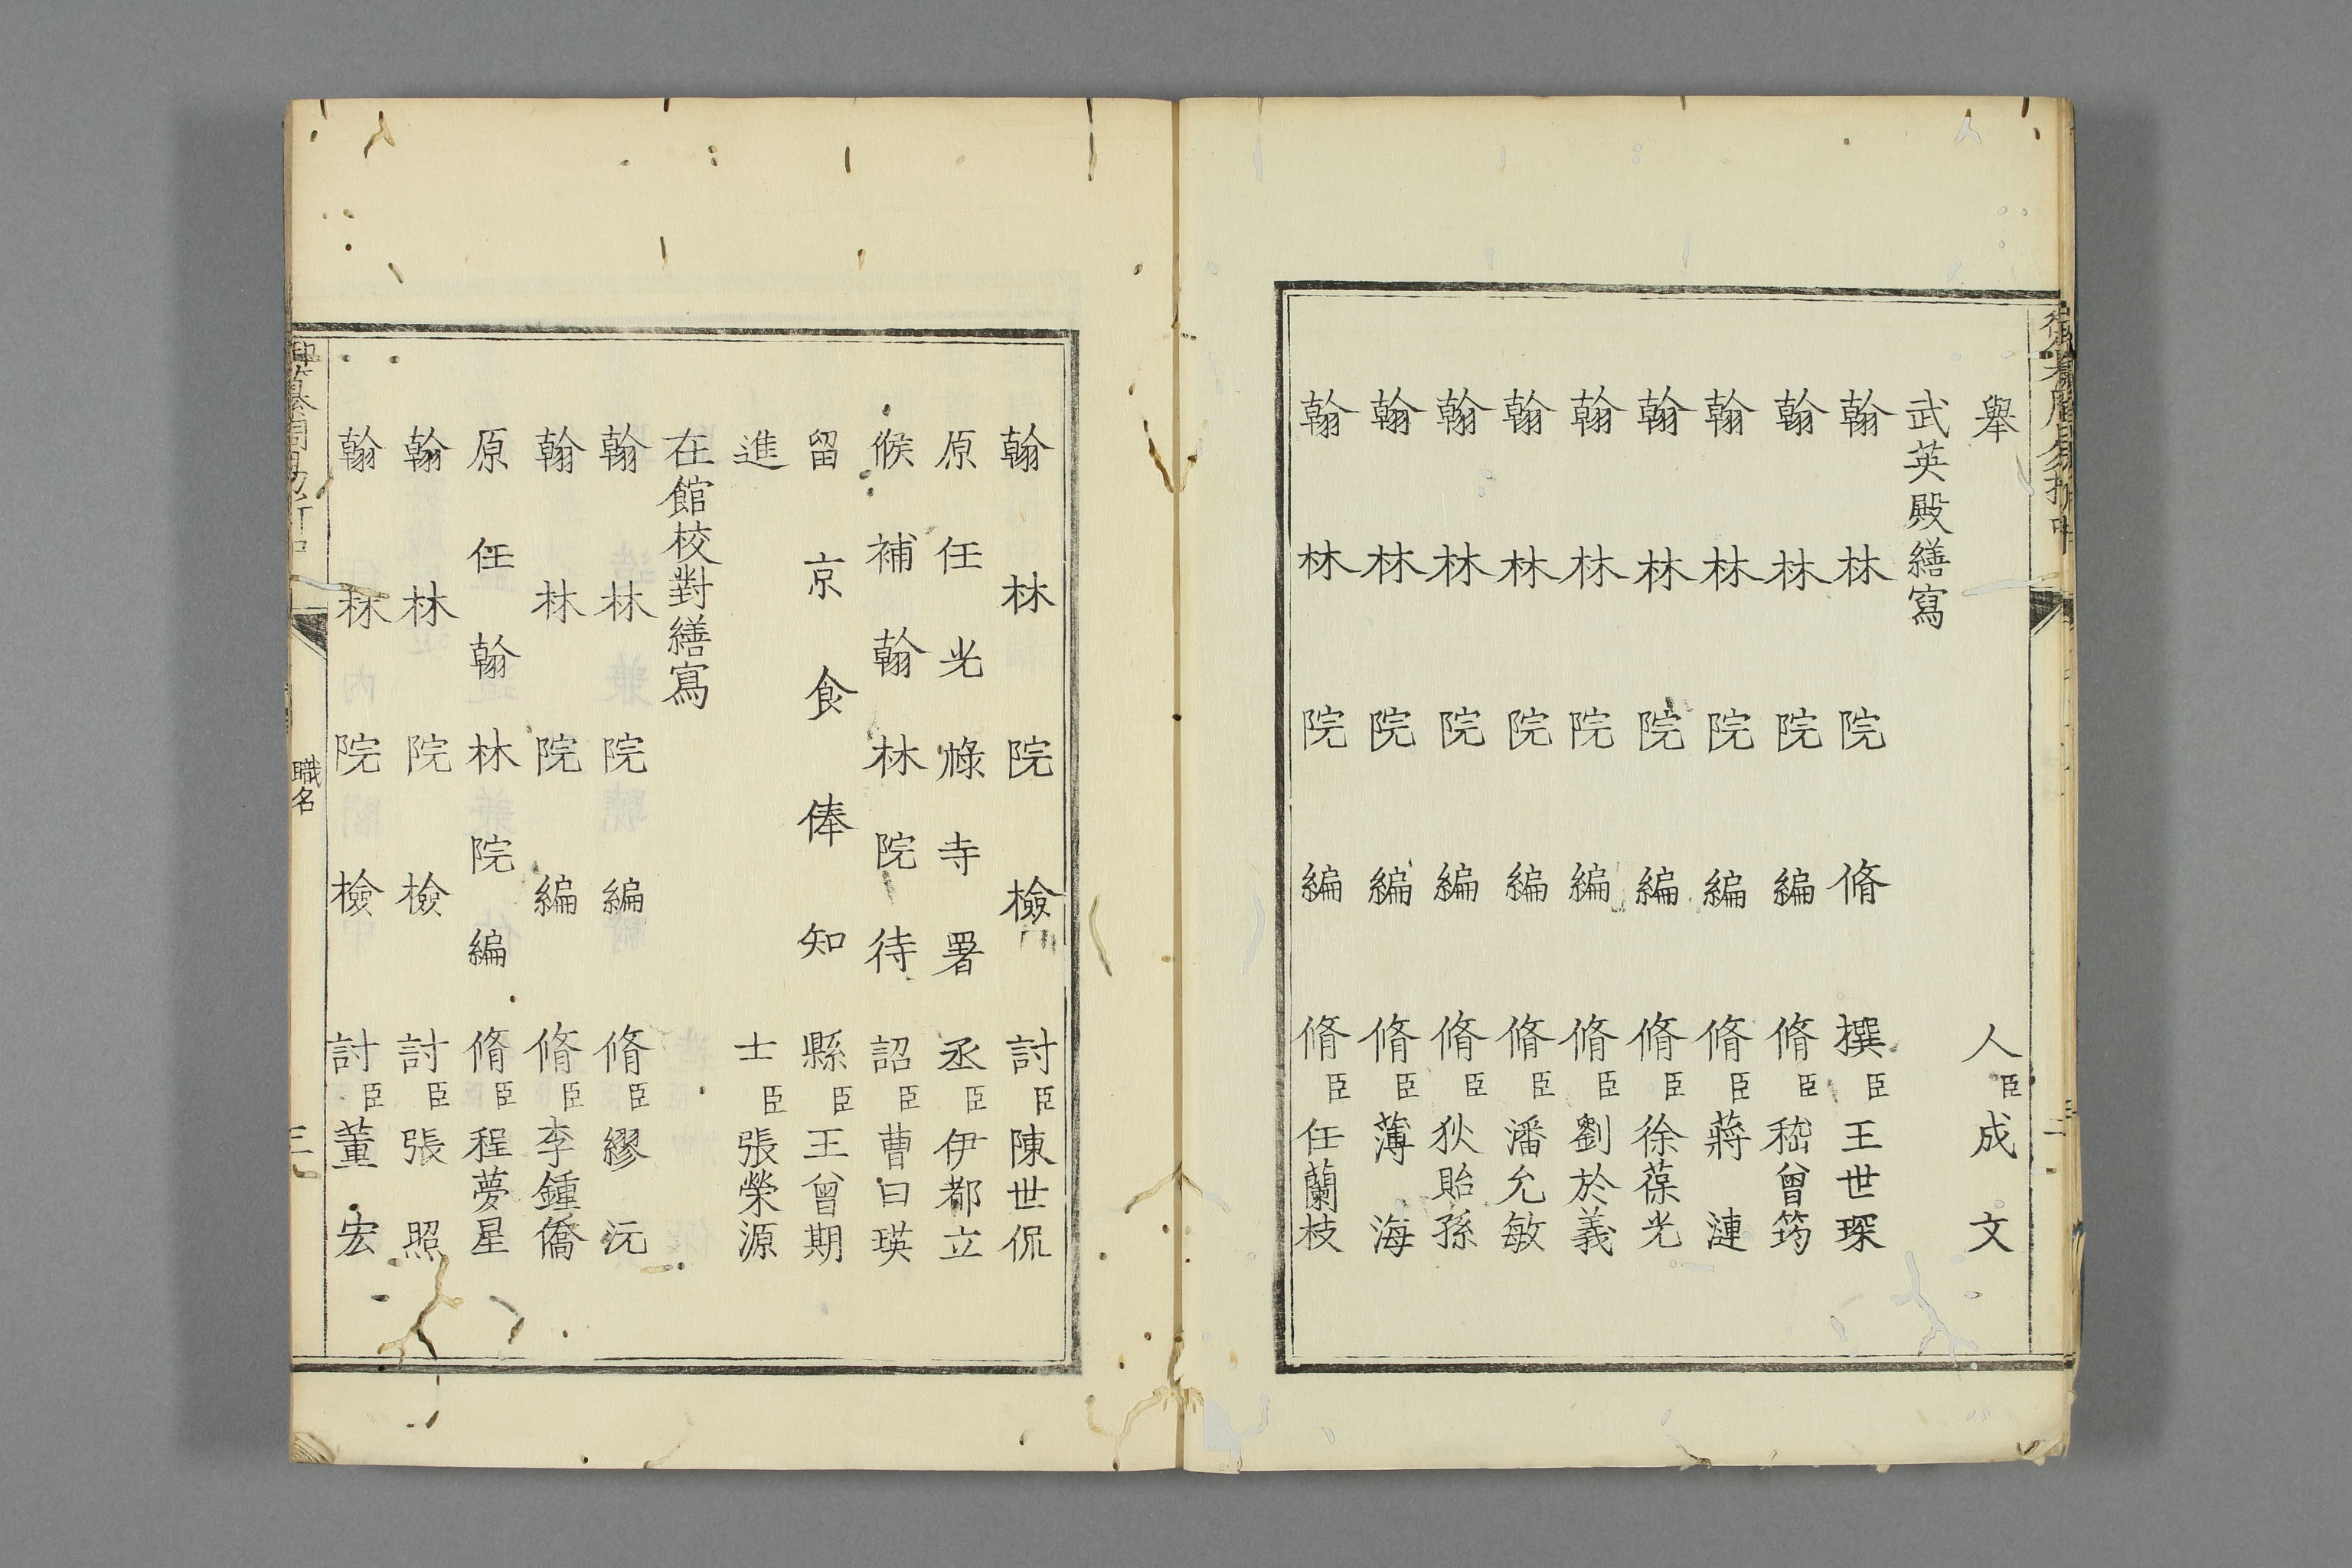 舉人臣成文
武英殿繕寫
翰林院脩撰臣王世琛
翰林院編脩臣嵇曾筠
翰林院編脩臣蔣漣
翰林院編脩臣徐葆光
翰林院編脩臣劉於義
翰林院編脩臣潘允敏
翰林院編脩臣狄貽孫
翰林院編脩臣薄海
翰林院編脩臣任蘭枝
翰林院檢討臣陳世侃
原任光祿寺署丞臣伊都立
候補翰林院待詔臣曹曰瑛
留京食俸知縣臣王曾期
進士臣張榮源
在館校對繕寫
翰林院編脩臣繆沅
翰林院編脩臣李鍾僑
原任翰林院編脩臣程夢星
翰林院檢討臣張照
翰林院檢討臣董宏
職名